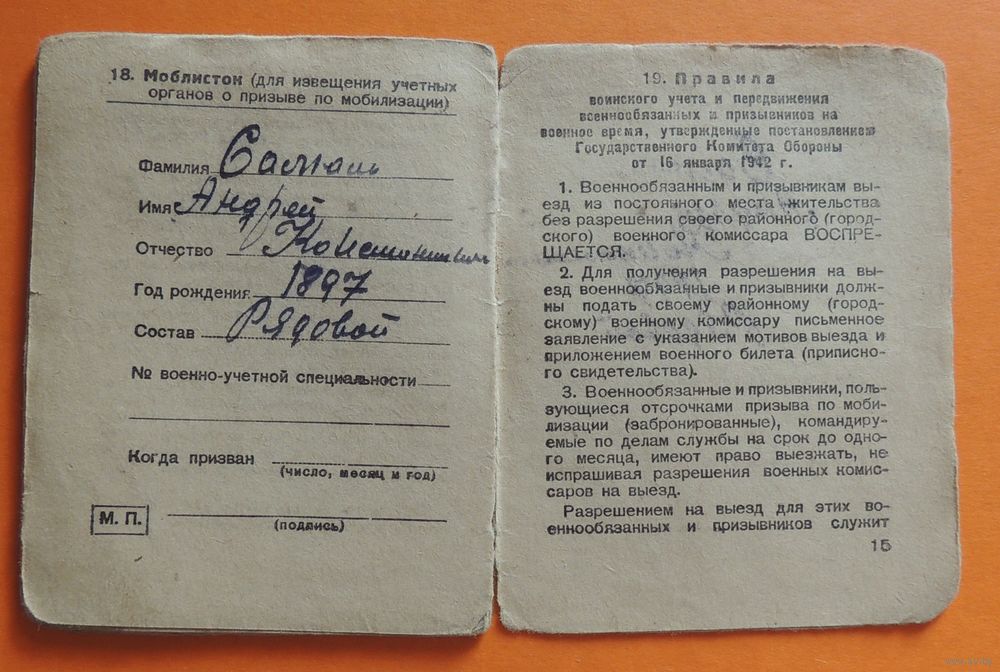 18. Моблистон (для извещения учетных
органов о призыве по мобилизации)
Фамилия
Имя Андрей
Отчество
Год рождения 1897
Состав Рядовой
№ военно-учетной специальности
Когда призван
(число, месяц и год)
М. П.
(подпись)
19. Правила
воинского учета и передвижения
военнообязанных и призывников на
военное время, утвержденные постановлением
Государственного Комитета Обороны
от 16 января 1942 г.
1. Военнообязанным и призывникам вы-
езд из постоянного места жительства
без разрешения своего районного (город-
ского) военного комиссара ВОСПРЕ-
ЩАЕТСЯ.
2. Для получения разрешения на вы-
езд военнообязанные и призывники долж-
ны подать своему районному (город-
скому) военному комиссару письменное
заявление с указанием мотивов выезда и
приложением военного билета (приписно-
го свидетельства).
3. Военнообязанные и призывники, поль-
зующиеся отсрочками призыва по моби-
лизации (забронированные), командиру-
емые по делам службы на срок до одно-
го месяца, имеют право выезжать, не
испрашивая разрешения военных комис-
саров на выезд.
Разрешением на выезд для этих во-
еннообязанных и призывников служит
15